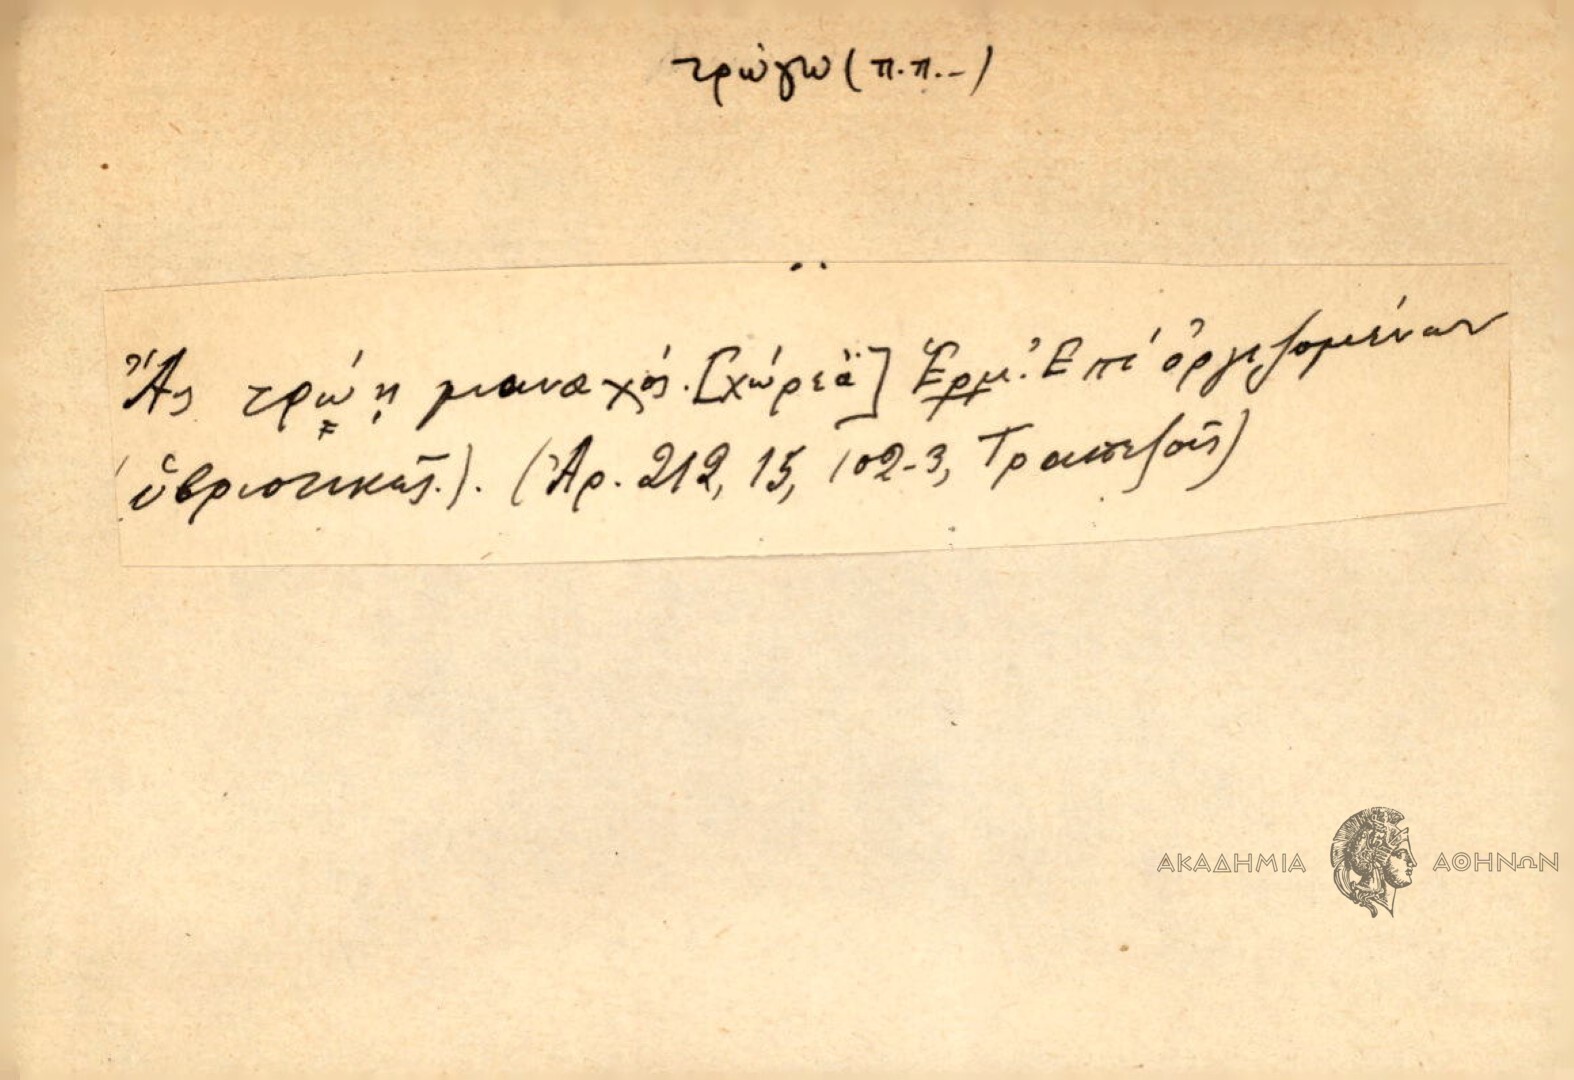 τρώγω (π.π.-)
Ἂς τρώῃ μαναχός. [χώρεὰ] Ἑρμ. Ἐπί ὀργιζομένων
ὑβριστικῶς.). (Ἀρ. 212, 15, 102-3, Τραπεζοῦς)
ΑΚΑΔΗΜΙΑ ΑΘΗΝΩΝ